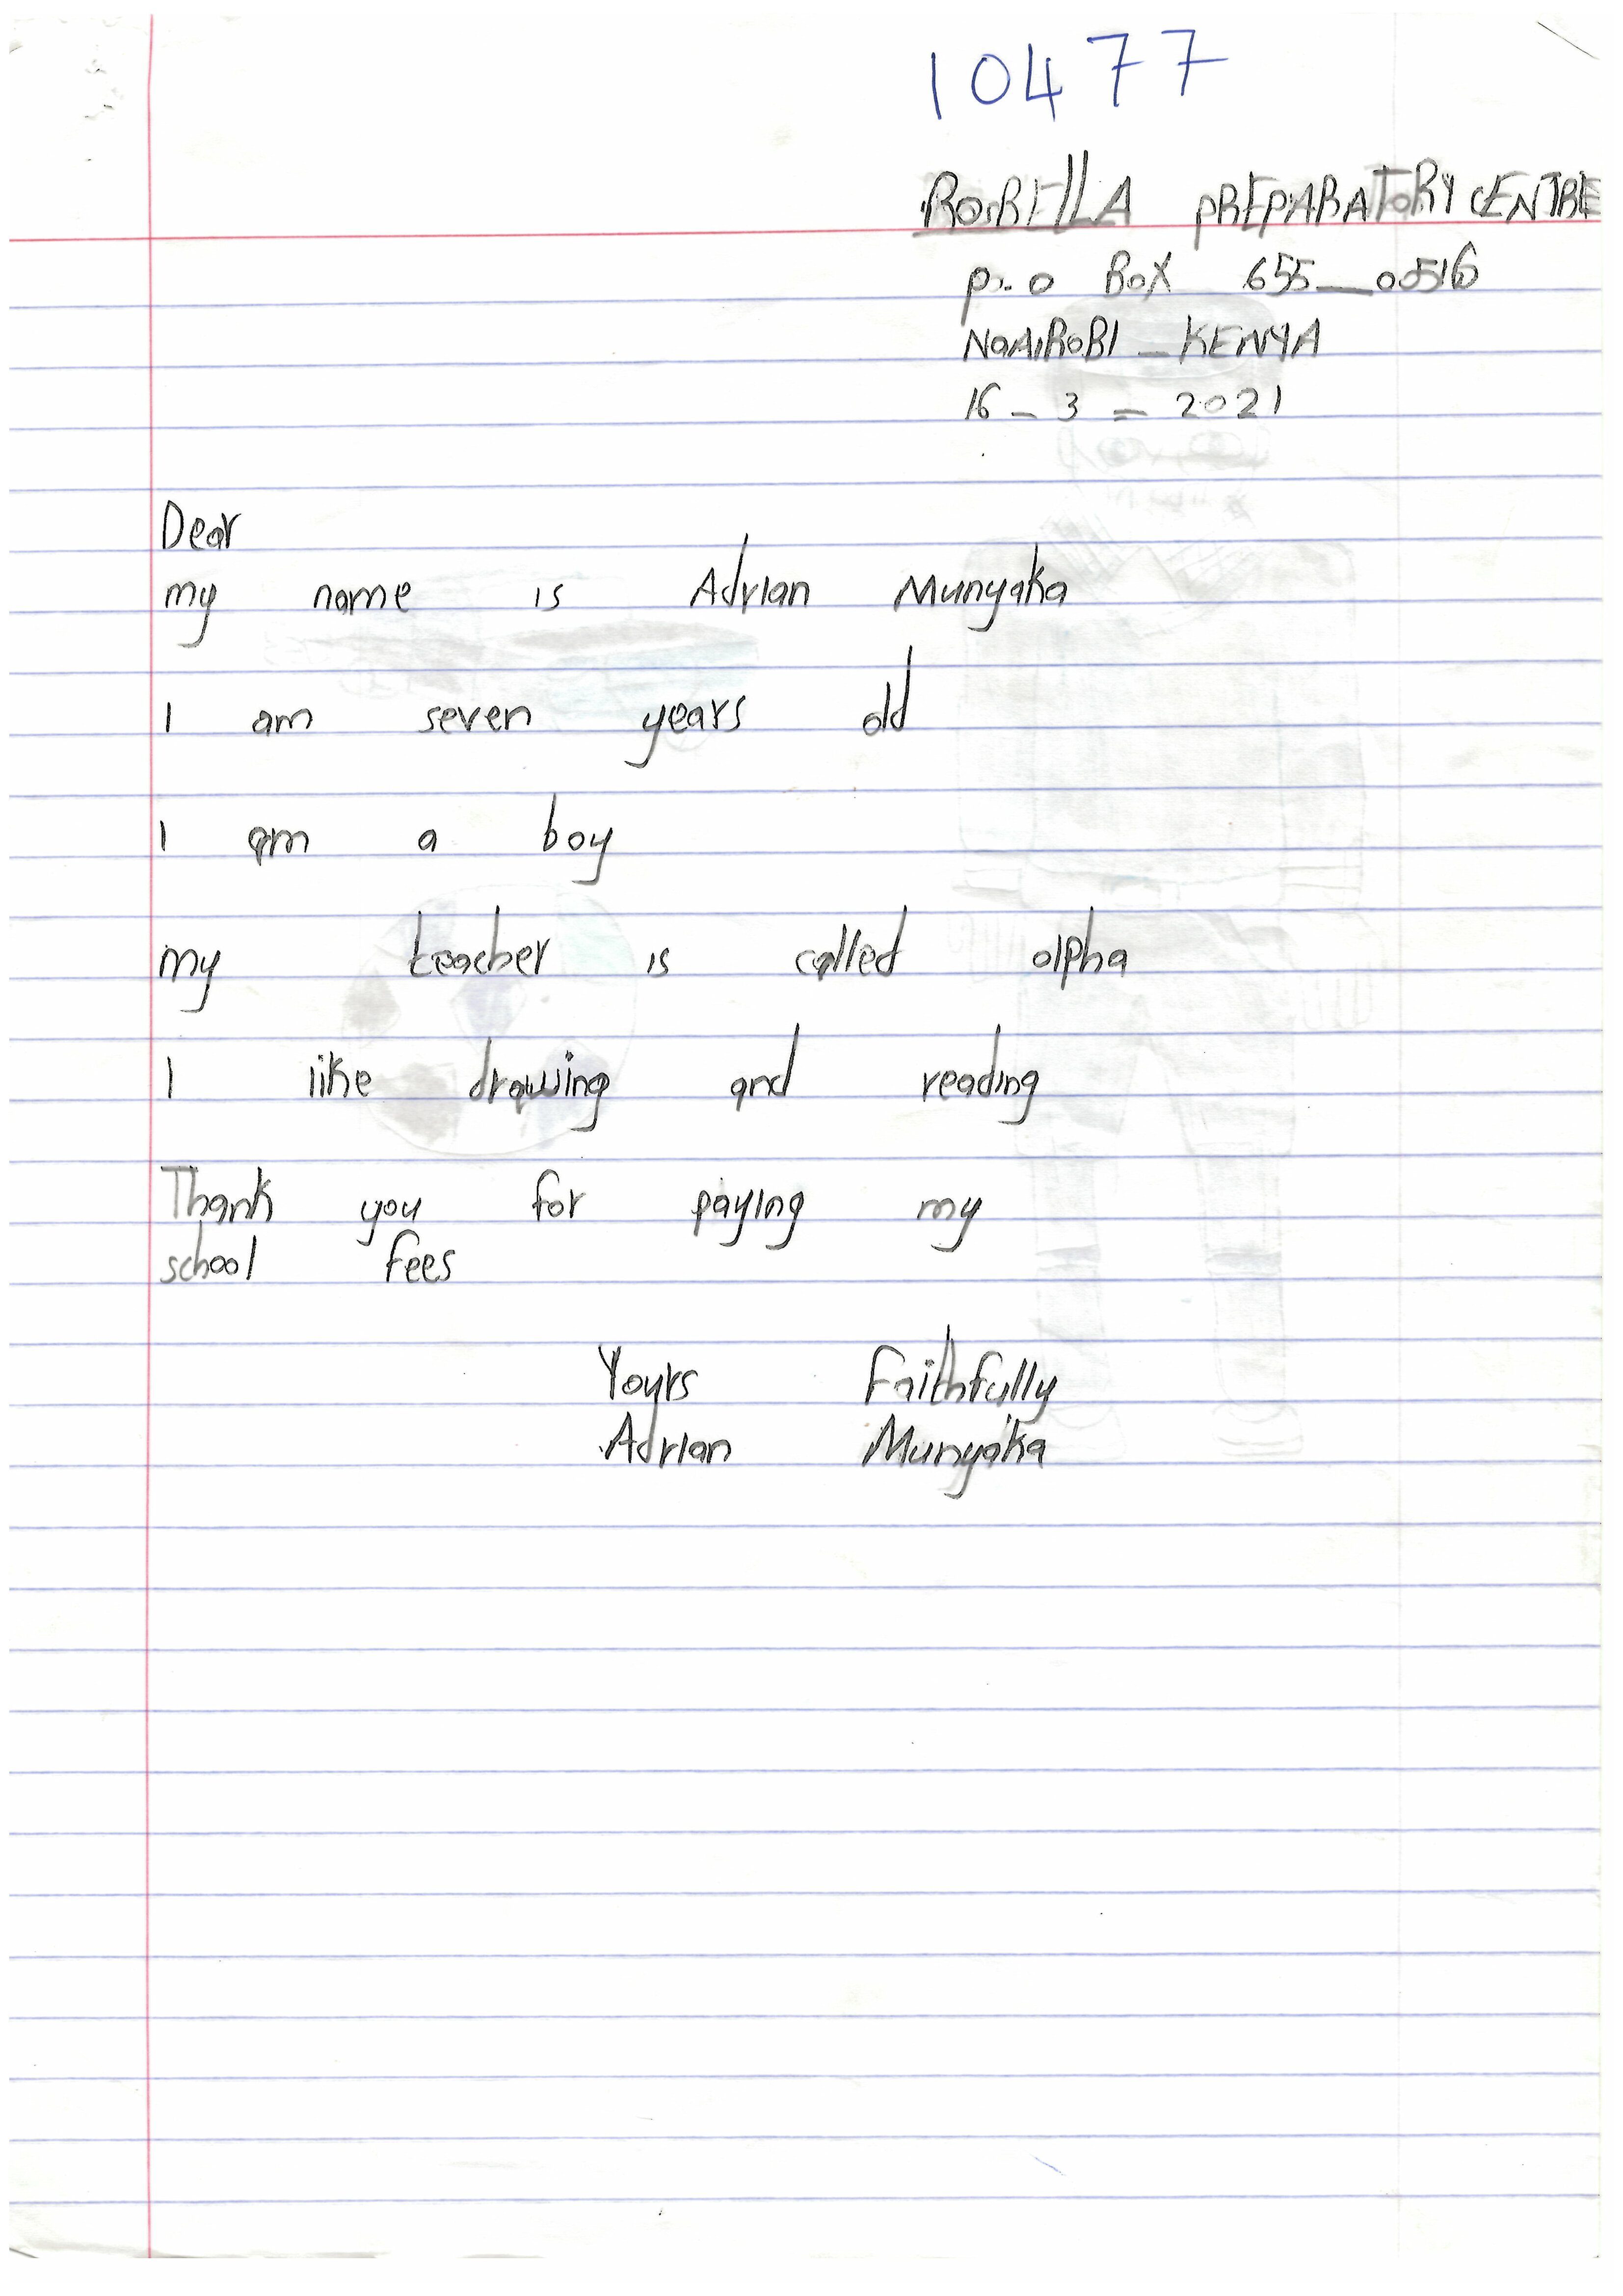 10477
ROSBELLA PREPARATORY CENTRE
P.O BOX 655_00516
NAIROBI _ KENYA
16 - 3 - 2021
Dear
my name is Adrian Munyaka
I am seven years old
I am a boy
my teacher is called alpha
I like drawing and reading
Thank you for paying my
school fees
Yours Faithfully
Adrian Munyaka